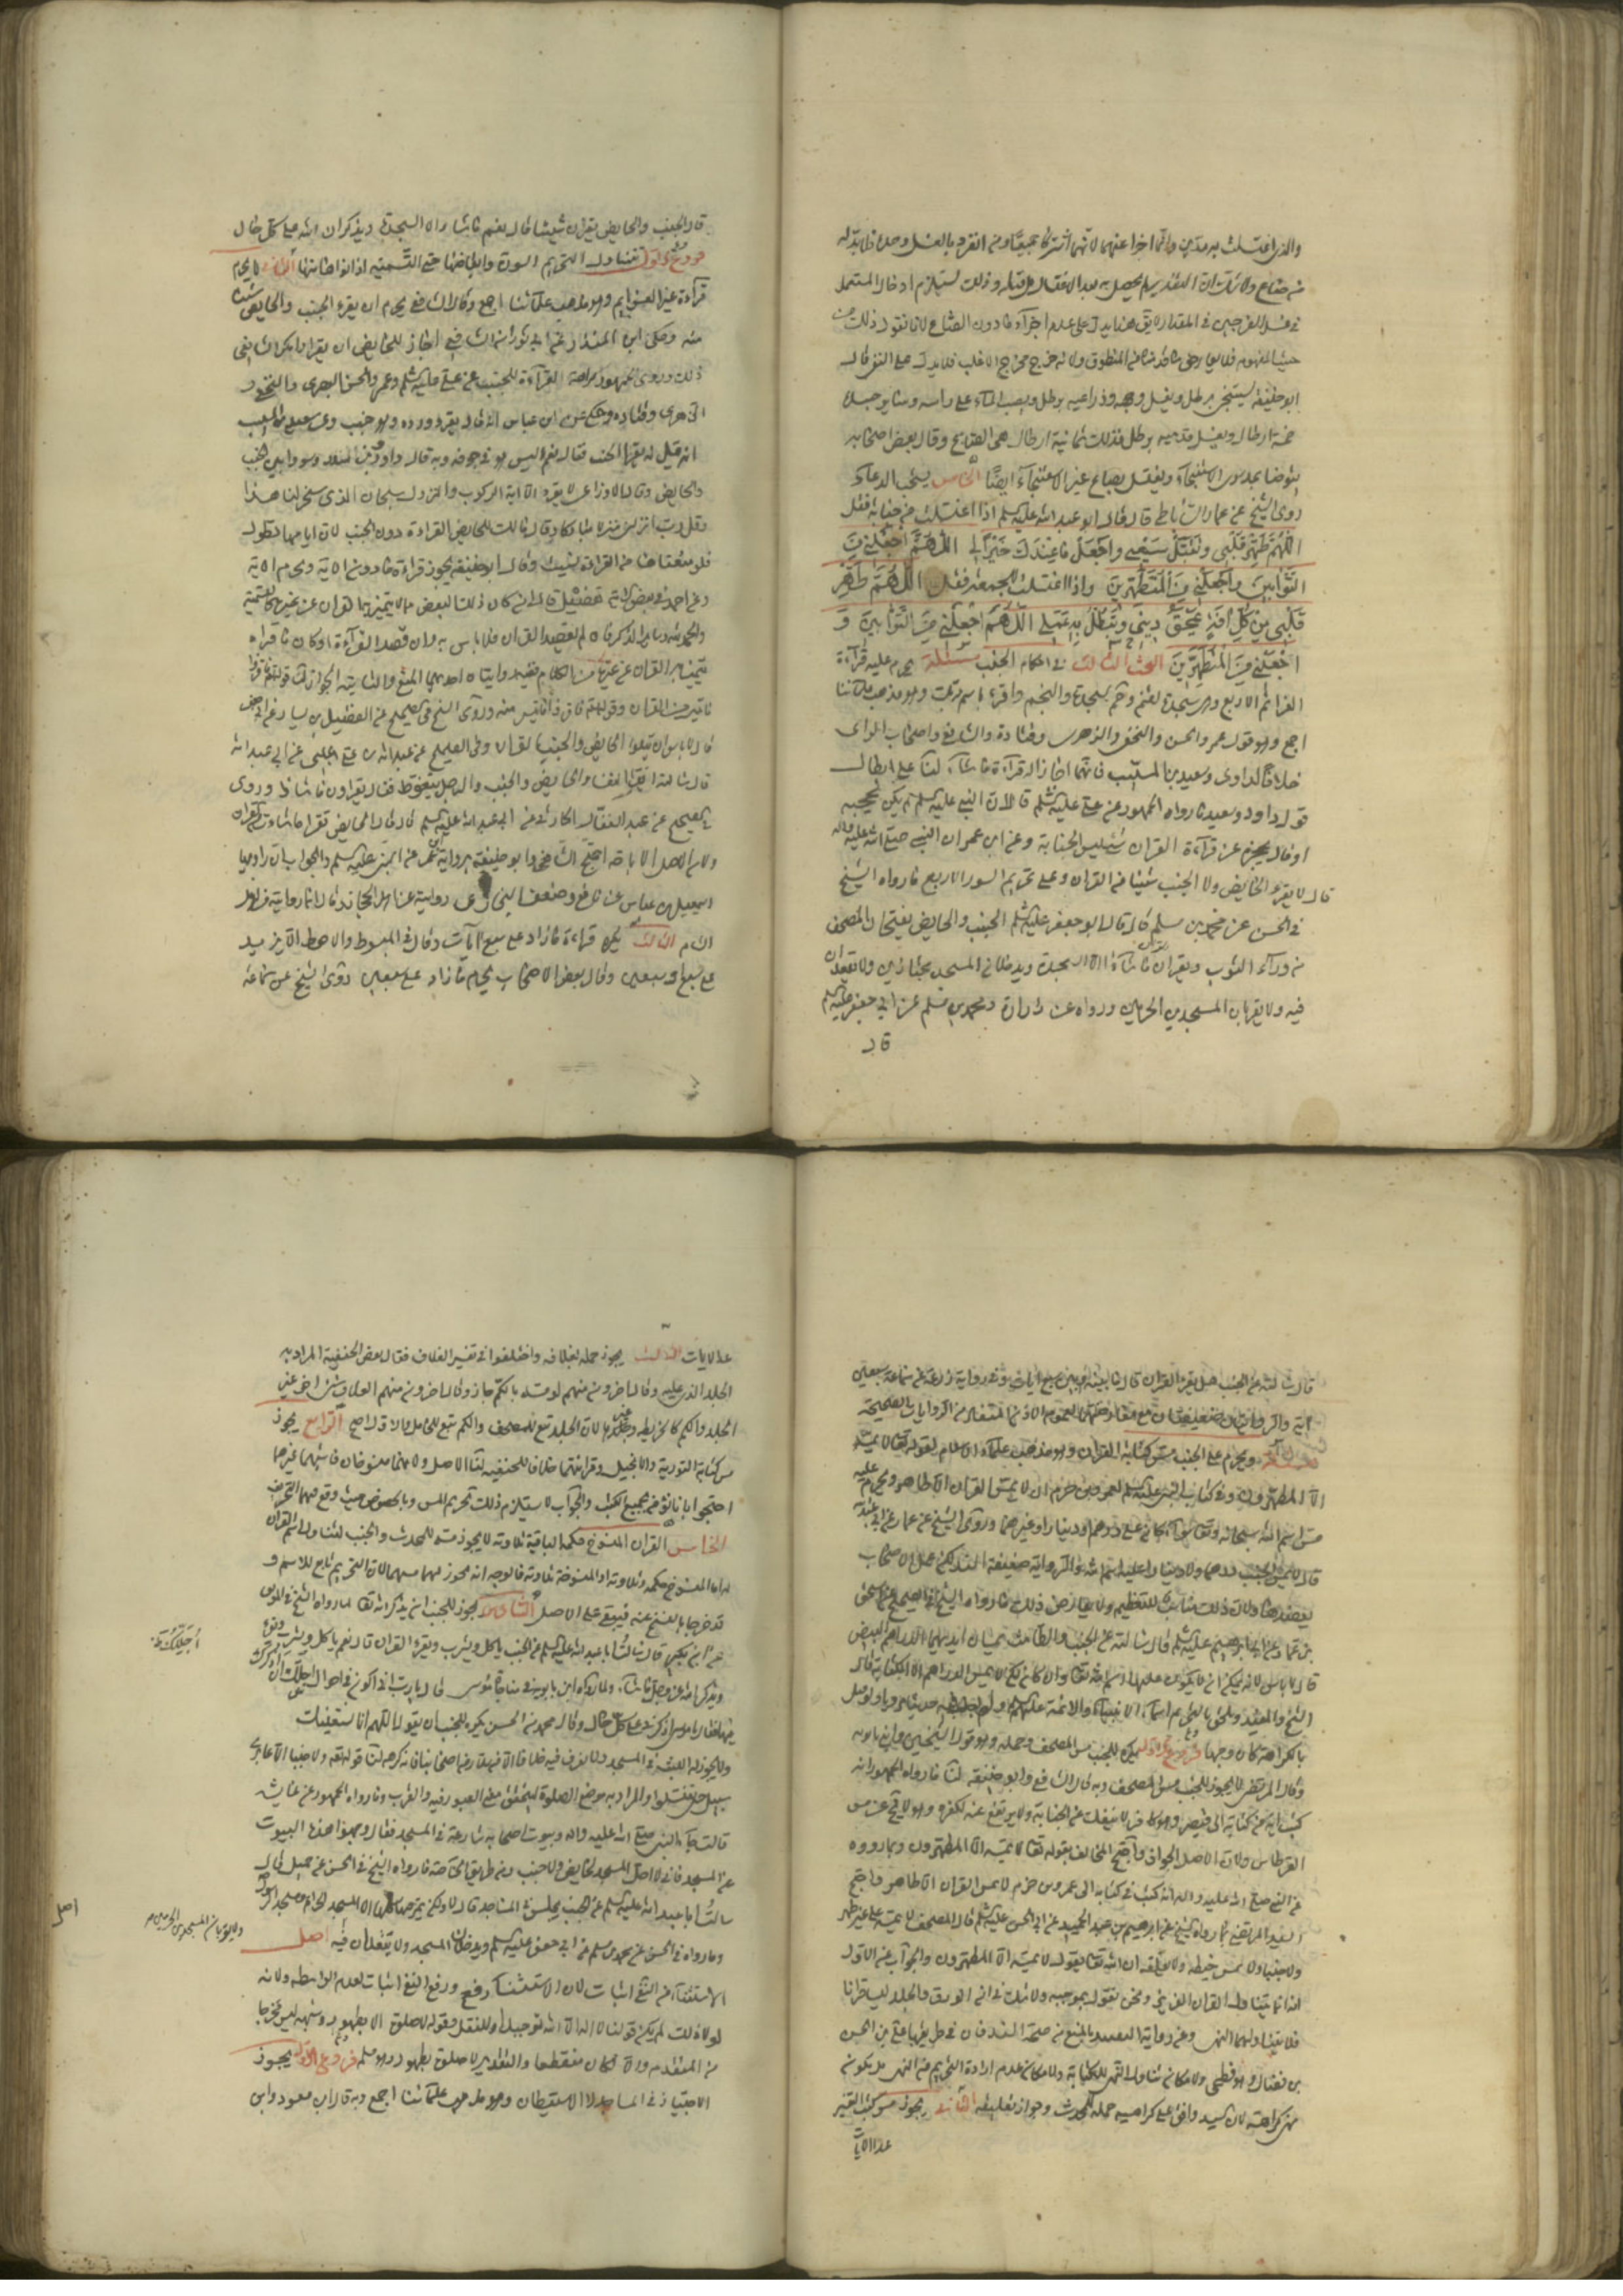 والذي اغتسلت به مدّين وانما اجزا عنهما لانهما اشتركا جميعا ومن انفرد بالغسل وحده فلا بد له
من صاع ولا شك ان التقدير لم يحصل به بعد الاغتسال بل قبله وذلك يستلزم ادخال المستعمل
في غسل الفرجين في المقدار لا يق هذا يدل على عدم اجزاء ما دون الصاع لانا نقول ذلك من
حيث المفهوم فلا يعارض ما قدمناه من المنطوق ولانه خرج مخرج الاغلب فلا يدل على النفي قال
ابو حنيفة يستنجي برطل ويغسل وجهه وذراعيه برطل ويصب الماء على راسه وسائر جسده
خمسة ارطال ويغسل قدميه برطل فذلك ثمانية ارطال هي الصاع وقال بعض اصحابه
يتوضا بمد سوى الاستنجاء ويغتسل بصاع غير الاستنجاء ايضا الخامس يستحب الدعاء
روى الشيخ عن عمار الساباطي قال قال ابو عبد الله عليه السلم اذا اغتسلت من جنابة فقل
اللهم طهر قلبي وتقبل سعيي واجعل ما عندك خيرا لي اللهم اجعلني من
التوابين واجعلني من المتطهرين واذا اغتسلت للجمعة فقل اللهم طهر
قلبي من كل افة تمحق ديني وتبطل به عملي اللهم اجعلني من التوابين و
اجعلني من المتطهرين البحث الثالث في احكام الجنب مسئلة يحرم عليه قراءة
العزائم الاربع وهي سجدة لقمن وحم السجدة والنجم واقرء باسم ربك وهو مذهب علمائنا
اجمع وهو قول عمر والحسن والنخعي والزهري وقتادة والشافعي واصحاب الراي
خلافا لداود وسعيد بن المسيب فانهما اجازا له قراءة ما شاء لنا على ابطال
قول داود وسعيد ما رواه الجمهور عن علي عليه السلم قال ان النبي عليه السلم لم يكن يحجبه
او قال يحجزه عن قراءة القران شئ ليس الجنابة وعن ابن عمر ان النبي صلى الله عليه واله
قال لا يقرء الحايض ولا الجنب شيئا من القران وعلى تحريم السور الاربع ما رواه الشيخ
في الحسن عن محمد بن مسلم قال قال ابو جعفر عليه السلم الجنب والحايض يفتحان المصحف
من وراء الثوب ويقران من القران ما شاءا الا السجدة ويدخلان المسجد مجتازين ولا يقعدان
فيه ولا يقربان المسجدين الحرمين ورواه عن زرارة ومحمد بن مسلم عن ابي جعفر عليه السلم
قال
قال الجنب والحايض يقران شيئا قال نعم ما شاءا الا السجدة ويذكران الله على كل حال
فروع الاول يتناول التحريم السورة وابعاضها حتى التسمية اذا نواها منها الثاني لا يحرم
قراءة غير العزايم وهو مذهب علمائنا اجمع وقال الشافعي يحرم ان يقرء الجنب والحايض شيئا
منه وحكى ابن المنذر عن ابي ثور ان الشافعي اجاز للحايض ان يقرا وانكر الشافعي
ذلك وروى الجمهور كراهة القراءة للجنب عن علي عليه السلم وعمر والحسن البصري والنخعي و
الزهري وقتادة وحكي عن ابن عباس انه قال يقرء ورده وهو جنب وعن سعيد بن المسيب
انه قيل له يقرا الجنب فقال نعم اليس هو في جوفه وبه قال داود وابن المنذر وسووا بين الجنب
والحايض وقال الاوزاعي لا يقرء الا اية الركوب والنزول سبحان الذي سخر لنا هذا
وقل رب انزلني منزلا مباركا وقال مالك للحايض القراءة دون الجنب لان ايامها تطول
فلو منعناها من القراءة نسيت وقال ابو حنيفة يجوز قراءة ما دون الاية ويحرم الاية
وعن احمد في بعض الاية تفصيل قال ان كان ذلك البعض مما لا يتميز به القران عن غيره كالتسمية
والحمد لله وساير الذكر فان لم يقصد القران فلا باس به وان قصد القراءة او كان ما قراه
يتميز به القران عن غيره من الكلام ففيه روايتان احديهما المنع والثانية الجواز لنا قوله تعالى فاقرؤا
ما تيسر من القران وقوله تعالى فاقرؤا ما تيسر منه وروى الشيخ في الصحيح عن الفضيل بن يسار عن ابي جعفر
قال لا باس ان يتلوا الحايض والجنب القران وفي الصحيح عن عبيد الله بن علي الحلبي عن ابي عبد الله
قال سالته اتقرا النفساء والحايض والجنب والرجل يتغوط فقال يقراون ما شاؤا وروى
في الصحيح عن عبد الغفار الحارثي عن ابي عبد الله عليه السلم قال قال الحايض تقرا ما شاءت من القران
ولان الاصل الاباحة احتج الشافعي وابو حنيفة برواية ابن عمر عن النبي عليه السلم والجواب ان راويها
اسمعيل بن عياش عن نافع وضعف البخاري روايته عن اهل الحجاز وقال انما روايته عن اهل
الشام الثالث يكره قراءة ما زاد على سبع ايات وقال في المبسوط والاحوط الا يزيد
على سبع او سبعين وقال بعض الاصحاب يحرم ما زاد على سبعين روى الشيخ عن سماعة
قال سالته عن الجنب هل يقرء القران قال ما بينه وبين سبع ايات وفي رواية زرعة عن سماعة سبعين
اية والروايتان ضعيفتان مع معارضتهما لعموم الاذن المستفاد من الروايات الصحيحة
مسئلة ويحرم على الجنب مس كتابة القران وهو مذهب علماء الاسلام لقوله تعالى لا يمسه
الا المطهرون وفي كتاب النبي عليه السلم لعمرو بن حزم ان لا يمس القران الا طاهر ويحرم عليه
مس اسم الله سبحانه وتعالى سواء كان على درهم او دينار او غيرهما وروى الشيخ عن عمار عن ابي عبد الله
قال لا يمس الجنب درهما ولا دينارا عليه اسم الله والرواية ضعيفة السند لكن عمل الاصحاب
يعضدها ولان ذلك مناسب للتعظيم ولا يعارض ذلك ما رواه الشيخ في الصحيح عن اسحق
بن عمار عن ابي ابراهيم عليه السلم قال سالته عن الجنب والطامث يمسان ايديهما الدراهم البيض
قال لا باس لانه يمكن ان لا يكون عليها اسم الله تعالى وان كان لكن لا يمس الدراهم الا الكتابة قال
الشيخ والمفيد ويلحق بالتحريم اسماء الانبياء والائمة عليهم السلم
بالكراهة كان وجها فروع الاول يكره للجنب مس المصحف وحمله وهو قول الشيخين وابن بابويه
وقال المرتضى لا يجوز للجنب مس المصحف وبه قال الشافعي وابو حنيفة لنا ما رواه الجمهور انه
كتب اية من كتابه الى قيصر وهو كافر لا ينفك عن الجنابة ولا يرتفع عنه لكفره وهو لا ينفك عن مس
القرطاس ولان الاصل الجواز واحتج المخالف بقوله تعالى لا يمسه الا المطهرون وبما رووه
عن النبي صلى الله عليه واله انه كتب في كتابه الى عمرو بن حزم لا يمس القران الا طاهر واحتج
السيد المرتضى بما رواه الشيخ عن ابراهيم بن عبد الحميد عن ابي الحسن عليه السلم قال المصحف لا تمسه على غير طهر
ولا جنبا ولا تمس خيطه ولا تعلقه ان الله تعالى يقول لا يمسه الا المطهرون والجواب عن الاول
انه انما يتناول القران ونحن نقول بموجبه ولا شك في ان الورق والجلد ليسا قرانا
فلا يتناولهما النهي وعن رواية السيد بالمنع من صحة السند فان في طريقها علي بن الحسن
بن فضال وهو فطحي ولامكان تناول النهي للكتابة ولامكان عدم ارادة التحريم من النهي بل يكون
نهي كراهة لان السيد وافق على كراهية حمله للمحدث وجواز تعليقه الثاني يجوز مس كتب التفسير
عدا الايات
عدا الايات الثالث يجوز حمله بغلافه واختلفوا في تفسير الغلاف فقال بعض الحنفية المراد به
الجلد الذي عليه وقال اخرون منهم لو مسه بالكم جاز وقال اخرون منهم الغلاف شئ اخر غير
الجلد والكم كالخريطة وغيرها لان الجلد تبع للمصحف والكم تبع للحامل والاول اصح الرابع يجوز
مس كتابة التورية والانجيل وقرائتهما خلافا للحنفية لنا الاصل ولانهما منسوخان فاشبها غيرهما
احتجوا بانا نؤمن بجميع الكتب والجواب لا يستلزم ذلك تحريم المس وبالخصوص حيث وقع فيهما التحريف
الخامس القران المنسوخ حكمه الباقية تلاوته لا يجوز مسه للمحدث والجنب لتناول اسم القران
له اما المنسوخ حكمه وتلاوته او المنسوخة تلاوته فالوجه انه يجوز لهما مسهما لان التحريم تابع للاسم و
قد خرجا بالنسخ عنه فيبقى على الاصل السادس يجوز للجنب ان يذكر الله تعالى لما رواه الشيخ في الموثق
عن ابن بكير قال سالت ابا عبد الله عليه السلم عن الجنب ياكل ويشرب ويقرء القران قال نعم ياكل ويشرب ويقرء
ويذكر الله عز وجل ما شاء ولما رواه ابن بابويه في مناجاة موسى قال يا رب اني اكون في احوال اجلك ان اذكرك
فيها فقال يا موسى اذكرني على كل حال وقال محمد بن الحسن يكره للجنب ان يقول اللهم انا نستعينك
ولا يجوز له اللبث في المسجد ولا نعرف فيه خلافا الا من سلار من اصحابنا فانه كرهه لنا قوله تعالى ولا جنبا الا عابري
سبيل حتى تغتسلوا والمراد به موضع الصلوة ليتحقق معنى العبور فيه والقرب وما رواه الجمهور عن عايشة
قالت جاء النبي صلى الله عليه واله وبيوت اصحابه شارعة في المسجد فقال وجهوا هذه البيوت
عن المسجد فاني لا احل المسجد لحايض ولا جنب ومن طريق الخاصة ما رواه الشيخ في الحسن عن جميل قال
سالت ابا عبد الله عليه السلم عن الجنب يجلس في المساجد قال لا ولكن يمر فيها كلها الا المسجد الحرام ومسجد الرسول
وما رواه في الحسن عن محمد بن مسلم عن ابي جعفر عليه السلم ويدخلان المسجد ولا يقعدان فيه اصل
الاستثناء من النفي اثبات لان الاستثناء رفع ورفع النفي اثبات لعدم الواسطة ولانه
لولا ذلك لم يكن قولنا لا اله الا الله توحيدا وللنقل وقوله لا صلوة الا بطهور وشبهه ليس مخرجا
من المتقدم والا لكان منقطعا والتقدير لا صلوة الا صلوة بطهور وهو مسلم فروع الاول يجوز
الاجتياز في المساجد الا الاستيطان وهو مذهب علمائنا اجمع وبه قال ابن مسعود وابن
اجلك
ولا يقربان المسجدين الحرمين
اصل